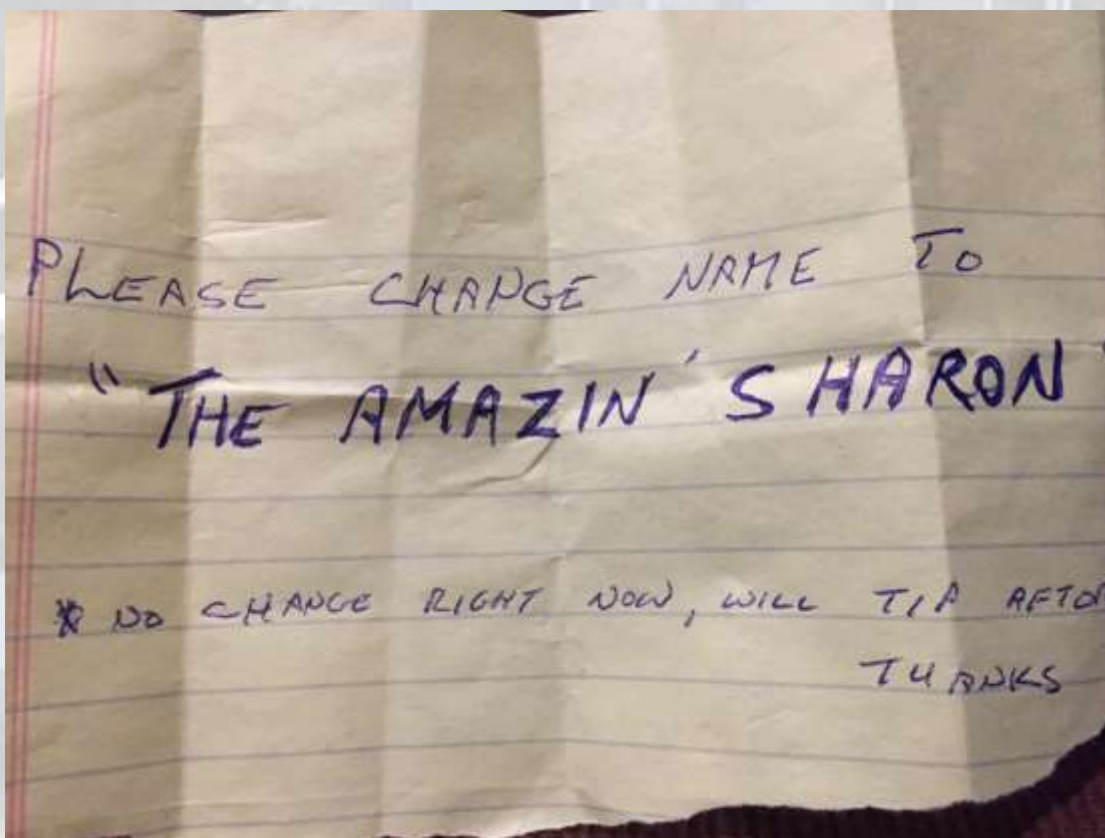 PLEASE CHANGE NAME TO
"THE AMAZIN' SHARON"
* NO CHANGE RIGHT NOW, WILL TIP AFTER
THANKS